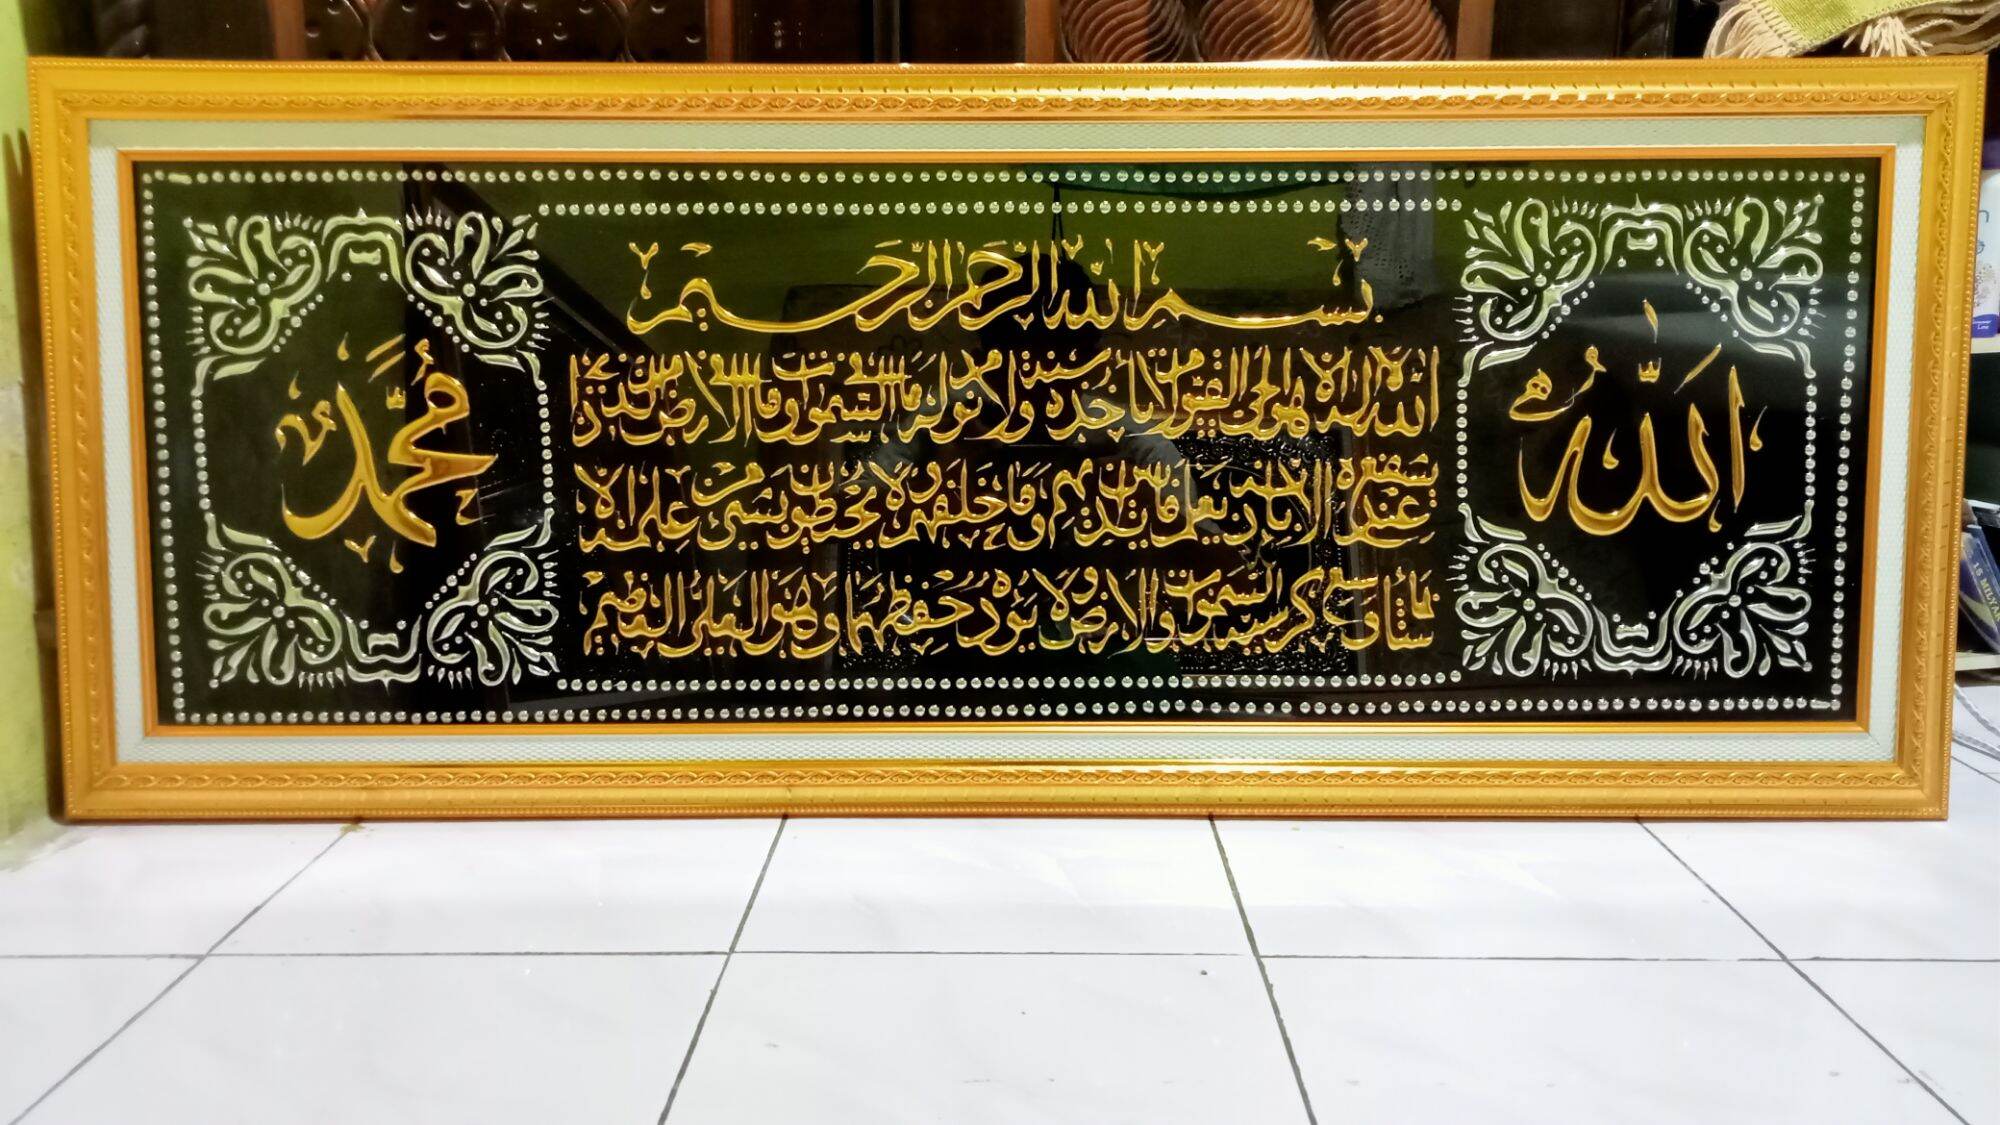 الله
بسم الله الرحمن الرحيم
الله لا إله إلا هو الحي القيوم لا تأخذه سنة ولا نوم له ما في السموات وما في الأرض من ذا الذي
يشفع عنده إلا بإذنه يعلم ما بين أيديهم وما خلفهم ولا يحيطون بشيء من علمه إلا
بما شاء وسع كرسيه السموات والأرض ولا يؤده حفظهما وهو العلي العظيم
محمد
15 MILYAR